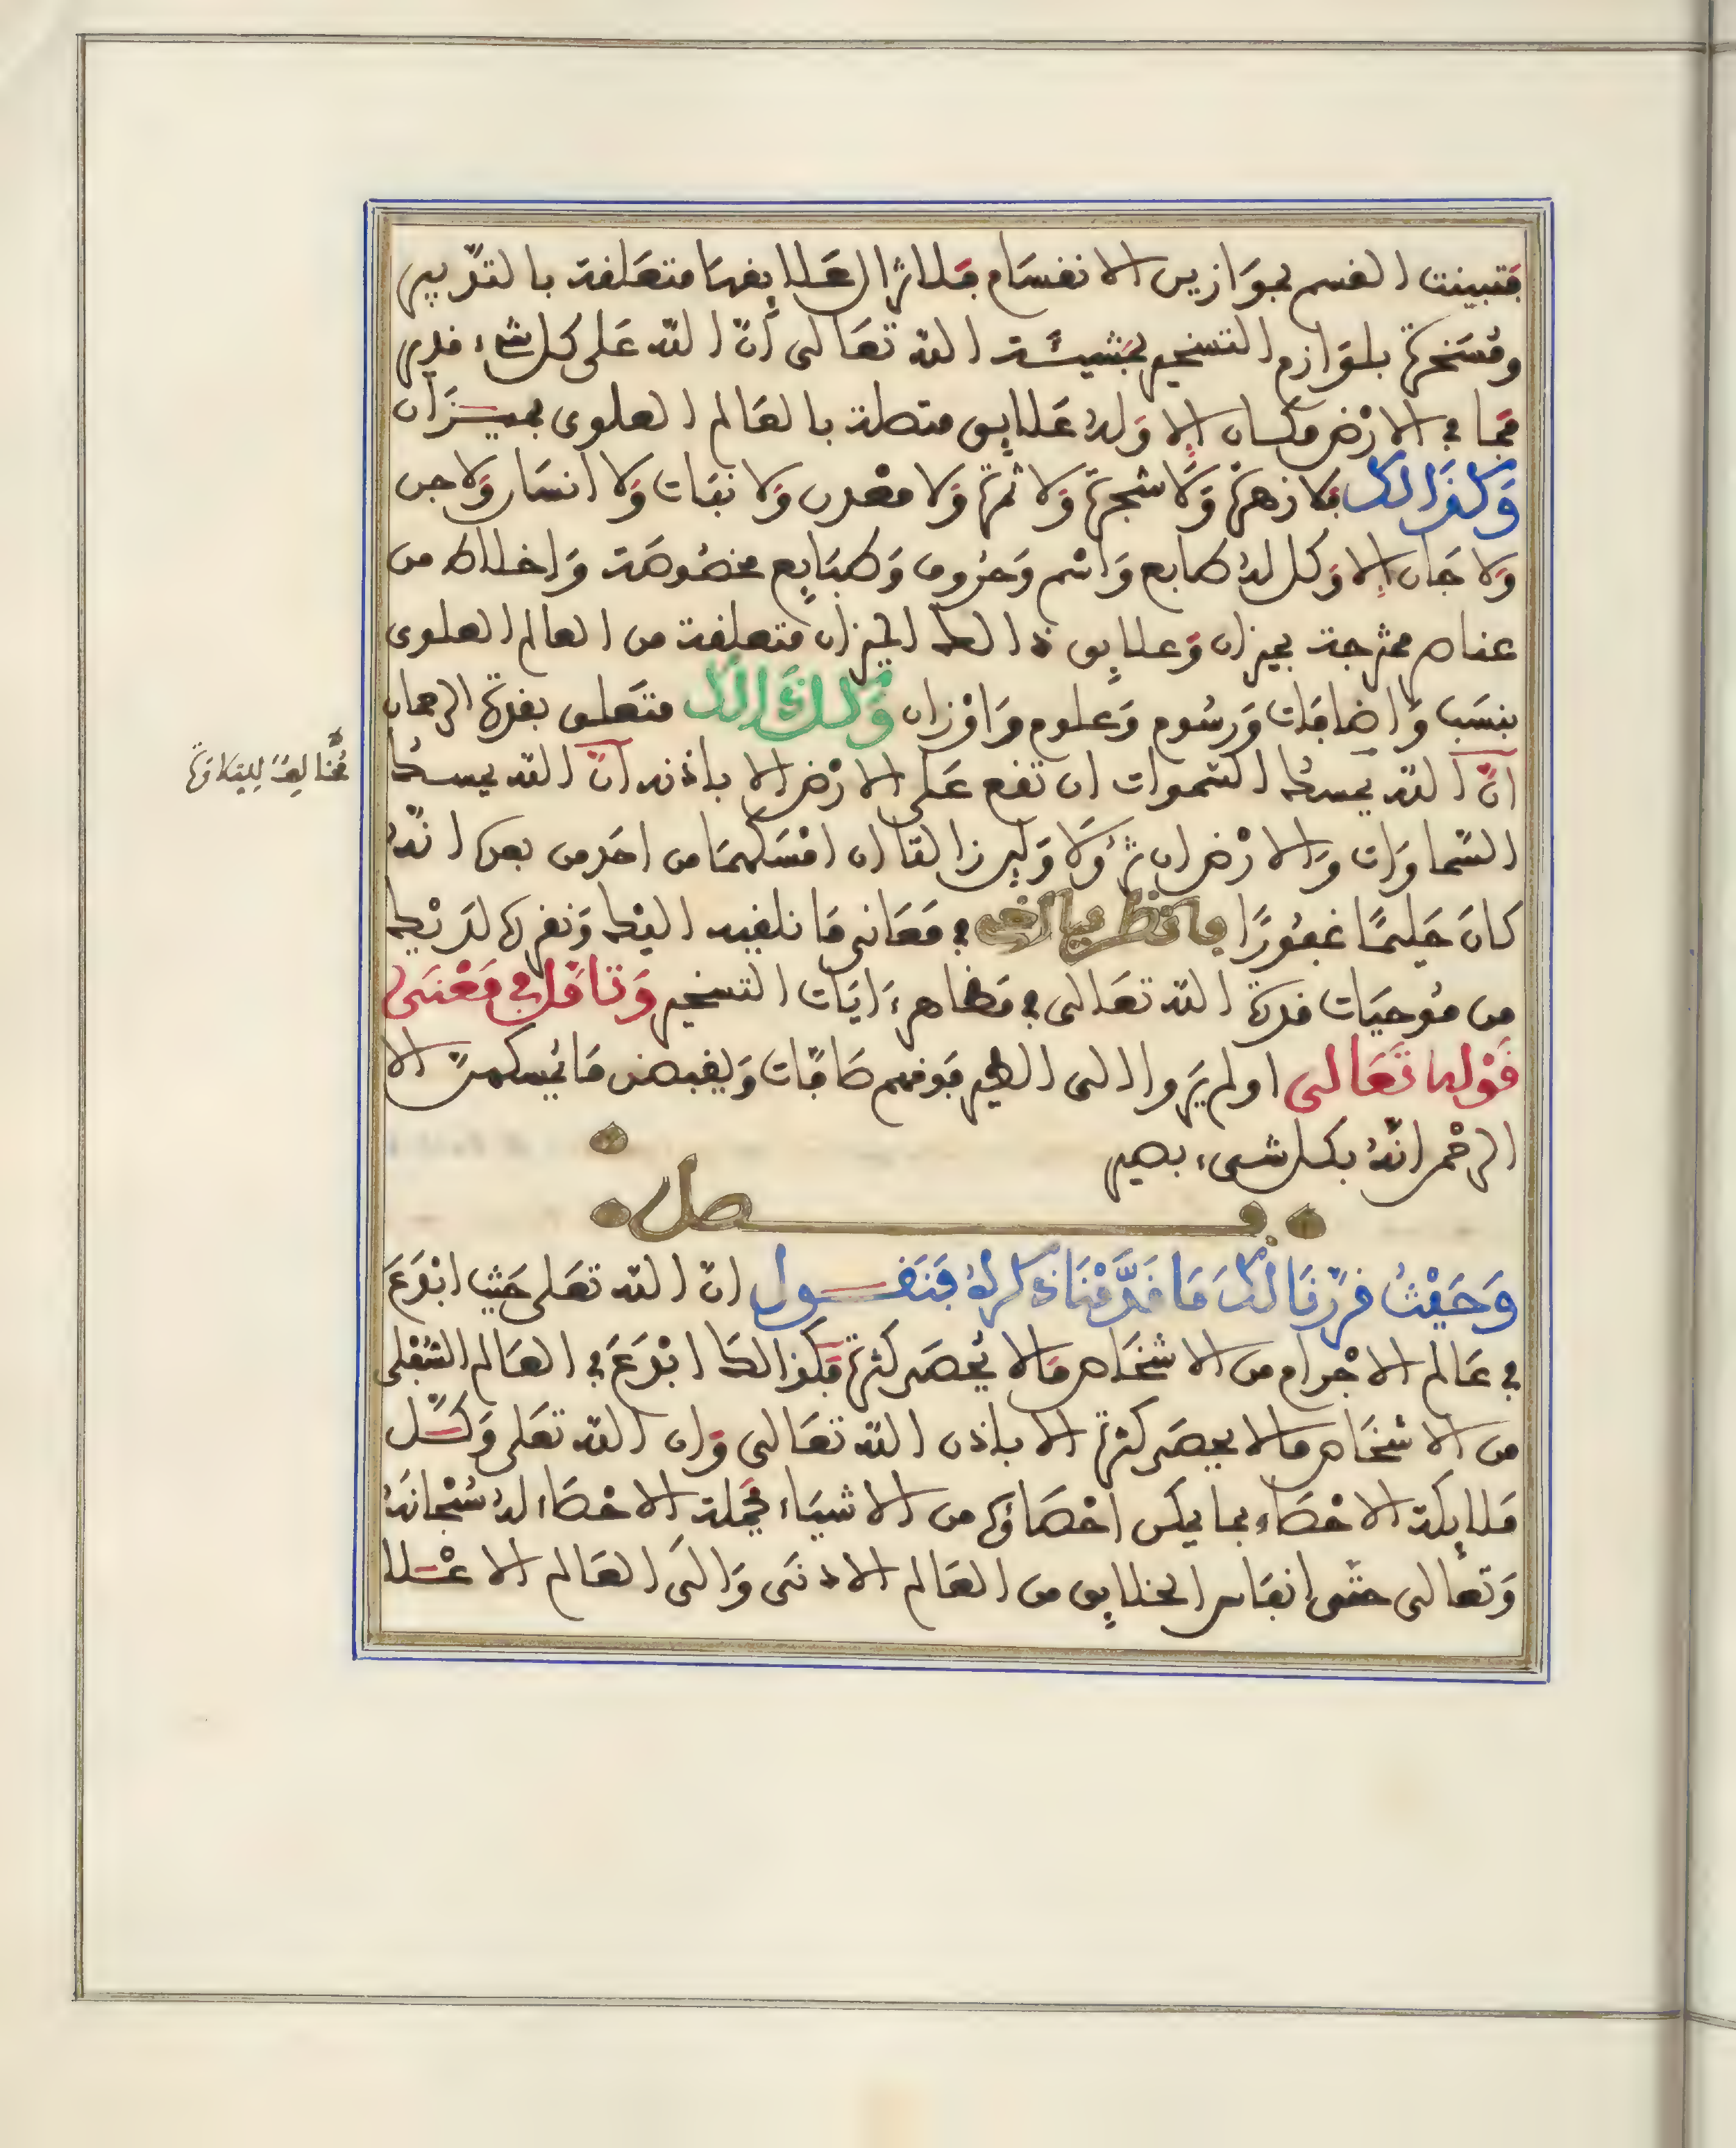 فتبينت القسم بموازين الانقسام فلا تزال علايقها متعلقة بالتدبير
ومسخرة بلوازم التسخير بمشيئة الله تعالى أنّ الله على كل شيء قدير
فما في الارض مكان إلا وله علايق متصلة بالعالم العلوي بميزان
وكذالك فلا زهرة ولا شجرة ولا ثمرة ولا معدن ولا نبات ولا انسان ولا جن
ولا جان إلا وكل له طابع واسم وحروف وطبايع مخصوصة واخلاط من
عناصر ممتزجة بميزان وعلايق ذالك الميزان متعلقة من العالم العلوي
بنسب واضافات ورسوم وعلوم واوزان وكل ذالك متعلق بقدرة الرحمان
انّ الله يمسك السموات ان تقع على الارض الا باذنه انّ الله يمسك
السماوات والارض ان تزولا ولين زالتا ان امسكهما من احد من بعده انه
كان حليمًا غفورًا فانظر يا اخي في معاني ما نلقيه اليك ونقرره لديك
من موحيات قدرة الله تعالى في مظاهر ءايات التسخير وتامل في معنى
قوله تعالى اولم يروا الى الطير فوقهم صافّات ويقبضن ما يمسكهنّ الا
الرحمن انّه بكل شيء بصير
فصل
وحيث قرّرنا لك ما قدّمنا ذكره فنقول انّ الله تعلى حيث ابدع
في عالم الاجرام من الاشخاص ما لا يحصر كثرة فكذالك ابدع في العالم السفلي
من الاشخاص ما لا يحصر كثرة الا باذن الله تعالى وان الله تعلى وكّل
ملايكة الاحصاء بما يمكن احصاؤه من الاشياء فجملة الاحصاء له سبحانه
وتعالى حتى انفاس الخلايق من العالم الادنى والى العالم الاعلا
مخالفٌ للتلاوة